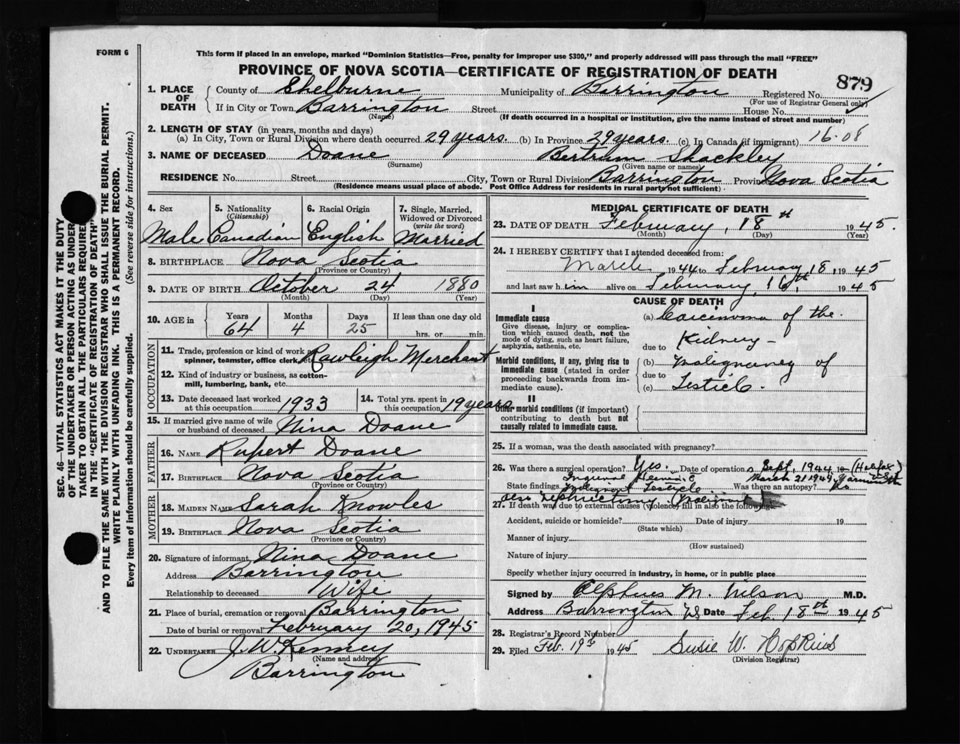 FORM 6
This form if placed in an envelope, marked "Dominion Statistics—Free, penalty for improper use $300," and properly addressed will pass through the mail "FREE"
PROVINCE OF NOVA SCOTIA—CERTIFICATE OF REGISTRATION OF DEATH
879
1. PLACE OF DEATH
County of Shelburne Municipality of Barrington Registered No.
(For use of Registrar General only)
If in City or Town Barrington Street House No.
(Name) (If death occurred in a hospital or institution, give the name instead of street and number)
2. LENGTH OF STAY (in years, months and days)
(a) In City, Town or Rural Division where death occurred 29 years. (b) In Province 29 years. (c) In Canada (if immigrant) 16-08
3. NAME OF DECEASED Doane Bertram Shackley
(Surname) (Given name or names)
RESIDENCE No. Street City, Town or Rural Division Barrington Province Nova Scotia
(Residence means usual place of abode. Post Office Address for residents in rural parts not sufficient)
4. Sex
Male
5. Nationality (Citizenship)
Canadian
6. Racial Origin
English
7. Single, Married, Widowed or Divorced (write the word)
Married
8. BIRTHPLACE Nova Scotia
(Province or Country)
9. DATE OF BIRTH October 24 1880
(Month) (Day) (Year)
10. AGE in Years Months Days If less than one day old
64 4 25 hrs. or min.
OCCUPATION
11. Trade, profession or kind of work as spinner, teamster, office clerk, etc. Rawleigh Merchant
12. Kind of industry or business, as cotton-mill, lumbering, bank, etc.
13. Date deceased last worked at this occupation 1933
14. Total yrs. spent in this occupation 19 years
15. If married give name of wife or husband of deceased Nina Doane
FATHER
16. NAME Rupert Doane
17. BIRTHPLACE Nova Scotia
(Province or Country)
MOTHER
18. MAIDEN NAME Sarah Knowles
19. BIRTHPLACE Nova Scotia
(Province or Country)
20. Signature of informant Nina Doane
Address Barrington
Relationship to deceased Wife
21. Place of burial, cremation or removal Barrington
Date of burial or removal February 20, 1945
22. UNDERTAKER J. W. Kenney
(Name and address)
Barrington
MEDICAL CERTIFICATE OF DEATH
23. DATE OF DEATH February, 18th 1945.
(Month) (Day) (Year)
24. I HEREBY CERTIFY that I attended deceased from:
March 1944 to February 18, 1945
and last saw him alive on February 16th 1945
CAUSE OF DEATH
I
Immediate cause
Give disease, injury or complication which caused death, not the mode of dying, such as heart failure, asphyxia, asthenia, etc.
(a) Carcinoma of the
Kidney—
due to
Morbid conditions, if any, giving rise to immediate cause (stated in order proceeding backwards from immediate cause).
(b) malignancy of
due to
(c) Testicle.
II
Other morbid conditions (if important) contributing to death but not causally related to immediate cause.
25. If a woman, was the death associated with pregnancy?
26. Was there a surgical operation? Yes. Date of operation Sept. 1944 (Halifax)
March 21 1944, Yarmouth
State findings Inguinal Hernia &
Malignant Testicle Was there an autopsy? No
also nephrectomy (Malignant)
27. If death was due to external causes (violence) fill in also the following:
Accident, suicide or homicide? Date of injury 19
(State which)
Manner of injury
(How sustained)
Nature of injury
Specify whether injury occurred in industry, in home, or in public place
Signed by Alpheus M. Wilson M.D.
Address Barrington NS Date Feb. 18th 1945
28. Registrar's Record Number
29. Filed Feb. 19th 1945 Susie W. Hopkins
(Division Registrar)
SEC. 46—VITAL STATISTICS ACT MAKES IT THE DUTY
OF THE UNDERTAKER OR PERSON ACTING AS UNDERTAKER TO OBTAIN ALL THE PARTICULARS REQUIRED
IN THE "CERTIFICATE OF REGISTRATION OF DEATH"
AND TO FILE THE SAME WITH THE DIVISION REGISTRAR WHO SHALL ISSUE THE BURIAL PERMIT.
WRITE PLAINLY WITH UNFADING INK. THIS IS A PERMANENT RECORD.
Every item of information should be carefully supplied. (See reverse side for instructions.)